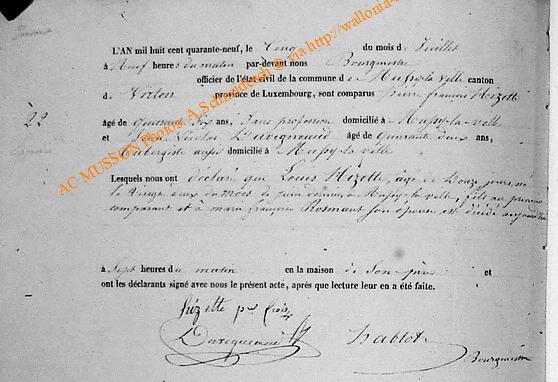 L'AN mil huit cent quarante-neuf, le Cinq du mois de Juillet
à Neuf heures du matin par-devant nous Bourgmestre
officier de l'état civil de la commune de Mussy-la-ville canton
d Virton province de Luxembourg, sont comparus pierre françois Hizette
22
âgé de quarante six ans, Sans profession domicilié à Mussy-la-ville
et Nicolas Duvigneaud âgé de Quarante deux ans,
Aubergiste aussi domicilié à Mussy-la-ville
Lesquels nous ont déclaré que Louis Hizette, âgé de douze jours, né
le Vingt deux du mois de juin dernier, à Mussy-la-ville, fils au premier
comparant et à marie françoise Rosmant son épouse, est décédé aujourd'hui
à Sept heures du matin en la maison de Son père et
ont les déclarants signé avec nous le présent acte, après que lecture leur en a été faite.
hizette pre frois
Duvigneaud
habtot
Bourgmestre
AC MUSSON Photos: A Schneiderich @ via http://wallonia-